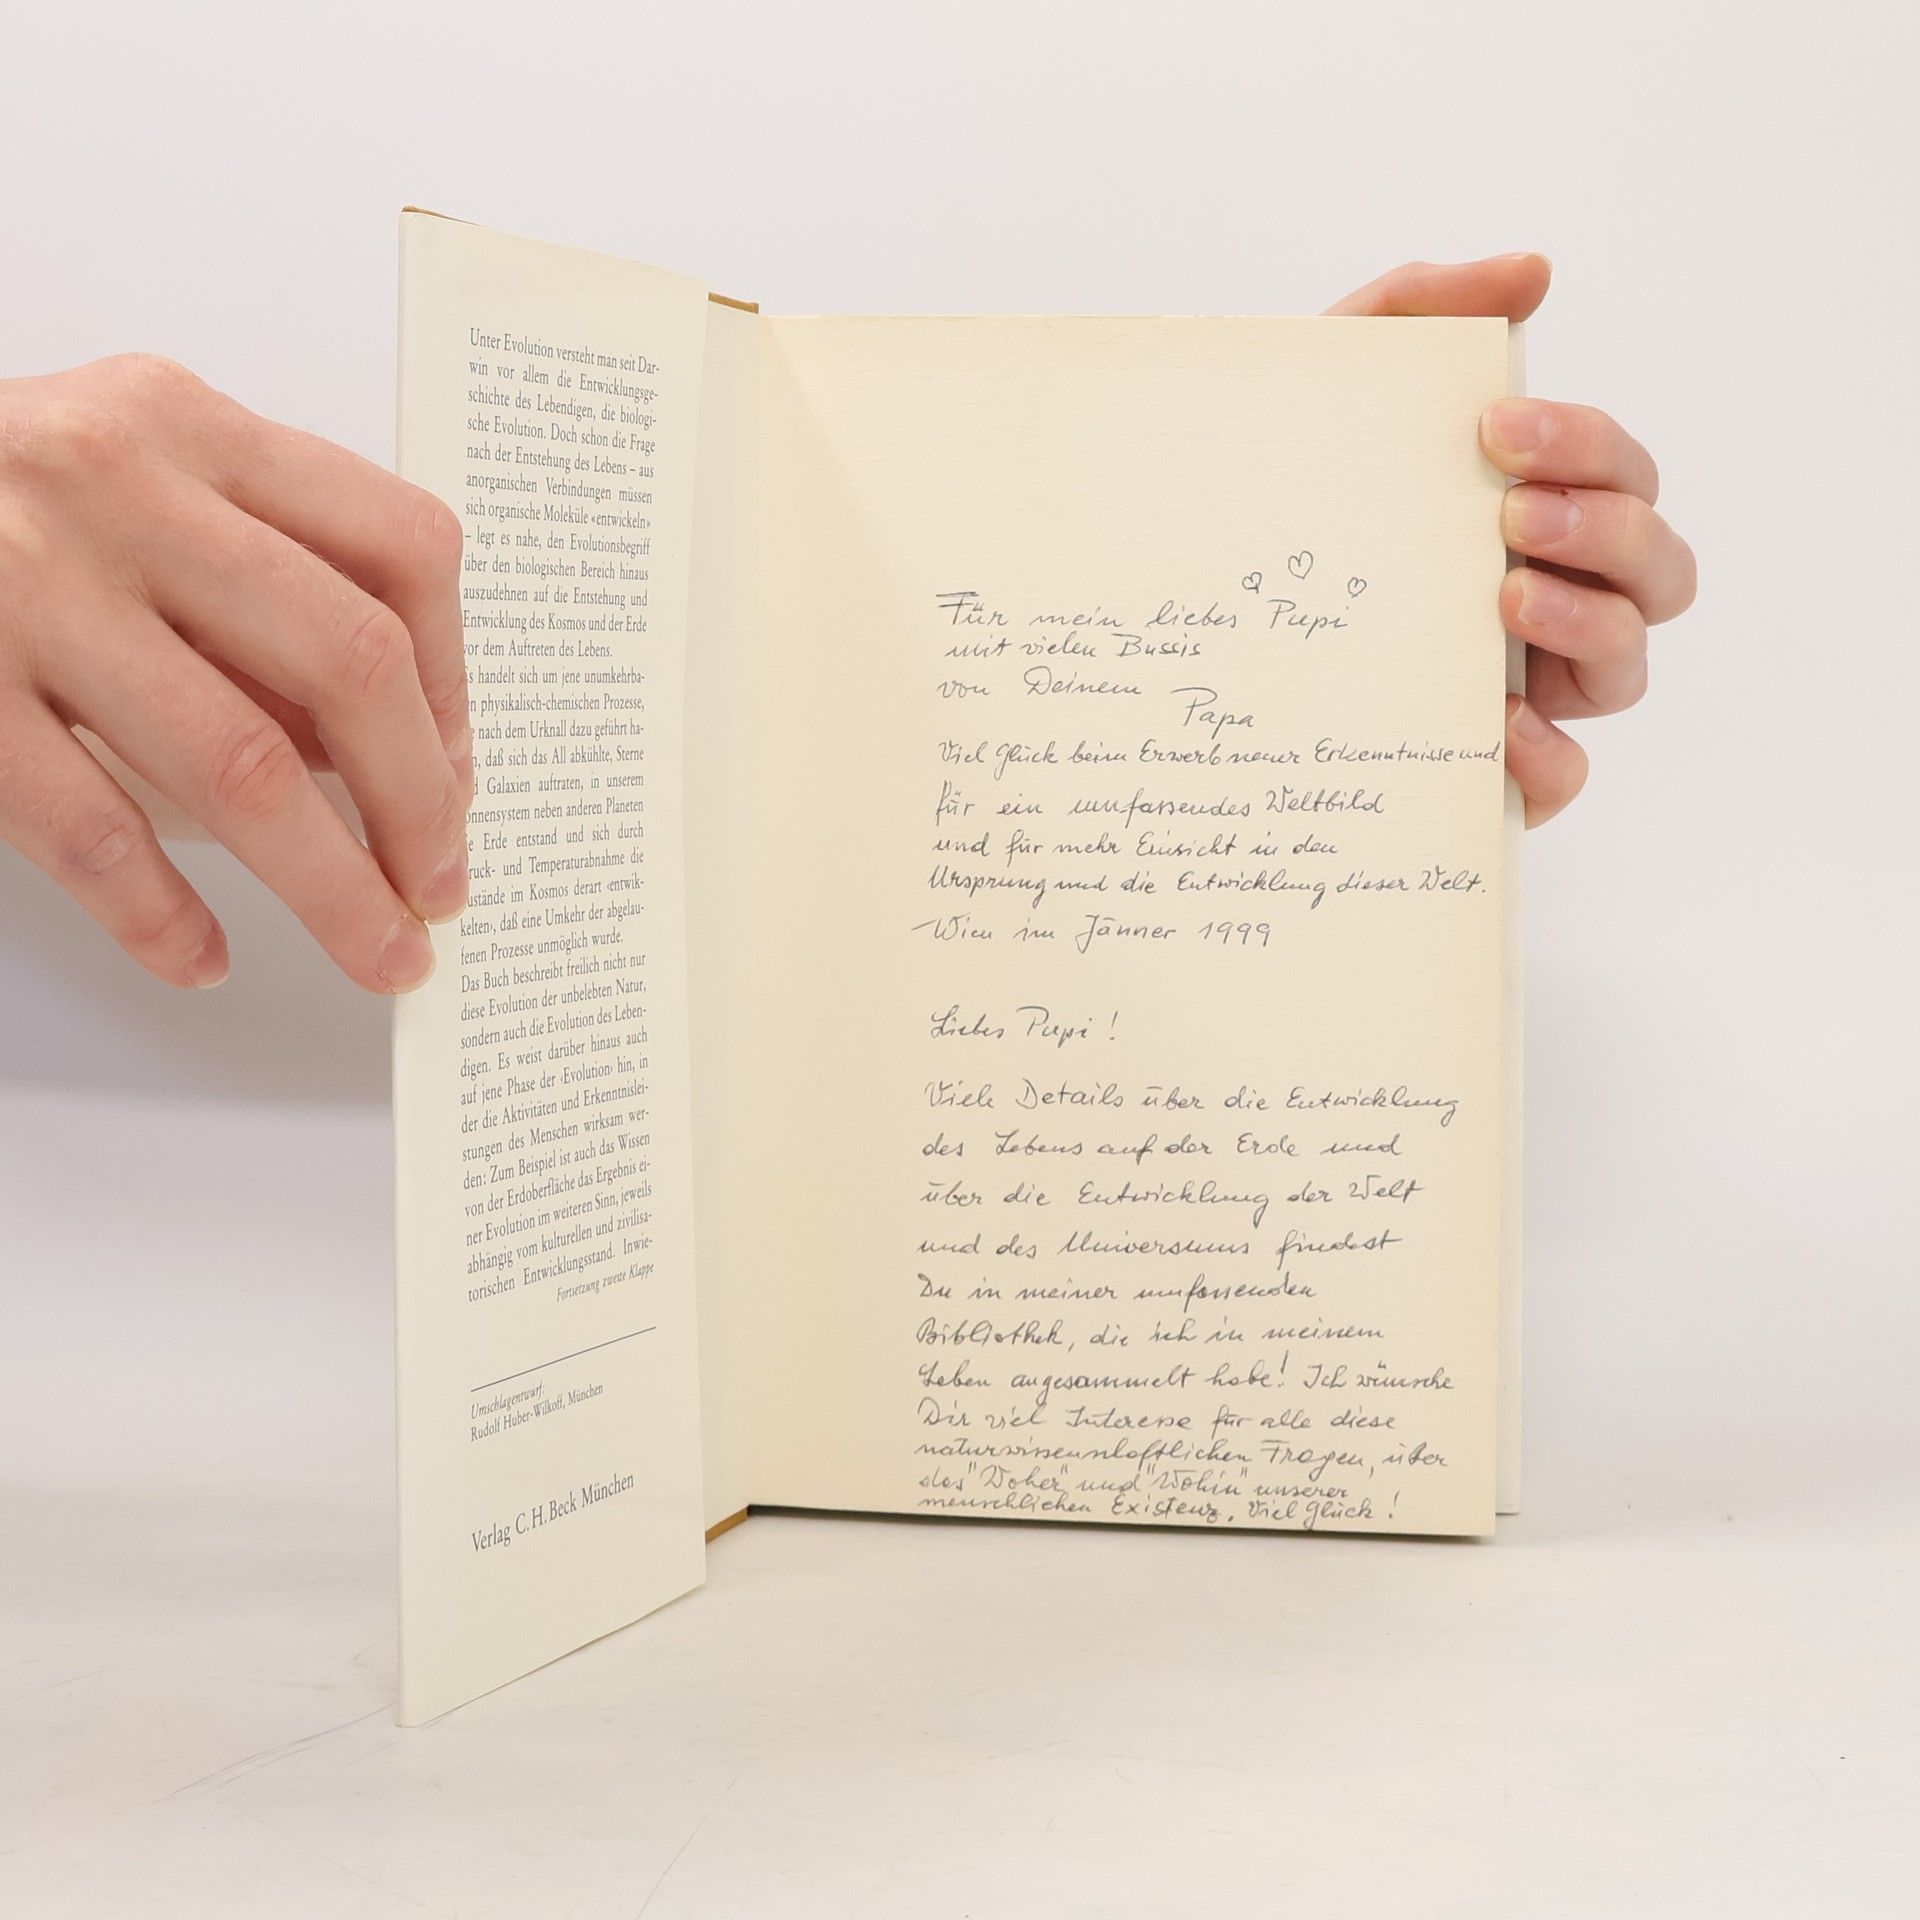 Unter Evolution versteht man seit Dar-
win vor allem die Entwicklungsge-
schichte des Lebendigen, die biologi-
sche Evolution. Doch schon die Frage
nach der Entstehung des Lebens – aus
anorganischen Verbindungen müssen
sich organische Moleküle «entwickeln»
– legt es nahe, den Evolutionsbegriff
über den biologischen Bereich hinaus
auszudehnen auf die Entstehung und
Entwicklung des Kosmos und der Erde
vor dem Auftreten des Lebens.
s handelt sich um jene unumkehrba-
n physikalisch-chemischen Prozesse,
nach dem Urknall dazu geführt ha-
n, daß sich das All abkühlte, Sterne
d Galaxien auftraten, in unserem
onnensystem neben anderen Planeten
e Erde entstand und sich durch
ruck- und Temperaturabnahme die
ustände im Kosmos derart ‹entwik-
kelten›, daß eine Umkehr der abgelau-
fenen Prozesse unmöglich wurde.
Das Buch beschreibt freilich nicht nur
diese Evolution der unbelebten Natur,
sondern auch die Evolution des Leben-
digen. Es weist darüber hinaus auch
auf jene Phase der ‹Evolution› hin, in
der die Aktivitäten und Erkenntnislei-
stungen des Menschen wirksam wer-
den: Zum Beispiel ist auch das Wissen
von der Erdoberfläche das Ergebnis ei-
ner Evolution im weiteren Sinn, jeweils
abhängig vom kulturellen und zivilisa-
torischen Entwicklungsstand. Inwie-
Fortsetzung zweite Klappe
Umschlagentwurf:
Rudolf Huber-Wilkoff, München
Verlag C.H.Beck München
Für mein liebes Pupi
mit vielen Bussis
von Deinem
Papa
Viel Glück beim Erwerb neuer Erkenntnisse und
für ein umfassendes Weltbild
und für mehr Einsicht in den
Ursprung und die Entwicklung dieser Welt.
Wien im Jänner 1999
Liebes Pupi!
Viele Details über die Entwicklung
des Lebens auf der Erde und
über die Entwicklung der Welt
und des Universums findest
Du in meiner umfassenden
Bibliothek, die ich in meinem
Leben angesammelt habe! Ich wünsche
Dir viel Interesse für alle diese
naturwissenschaftlichen Fragen, über
das "Woher" und "Wohin" unserer
menschlichen Existenz. Viel Glück!